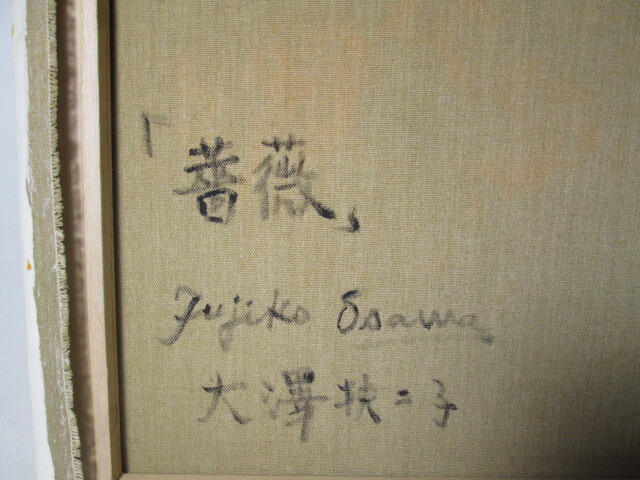 「薔薇」
Fujiko Osawa
大澤扶二子